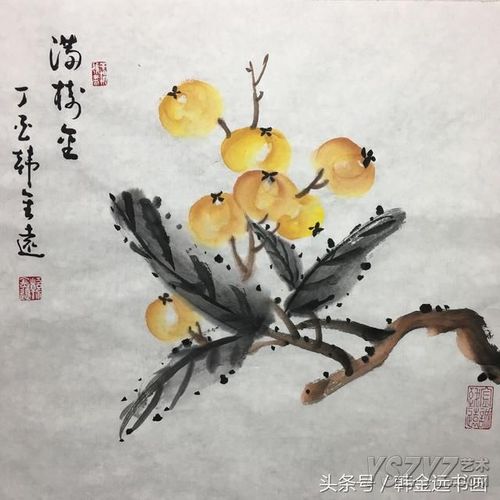 满树金
丁酉韩金远
YSZYZ艺术
头条号/韩金远书画